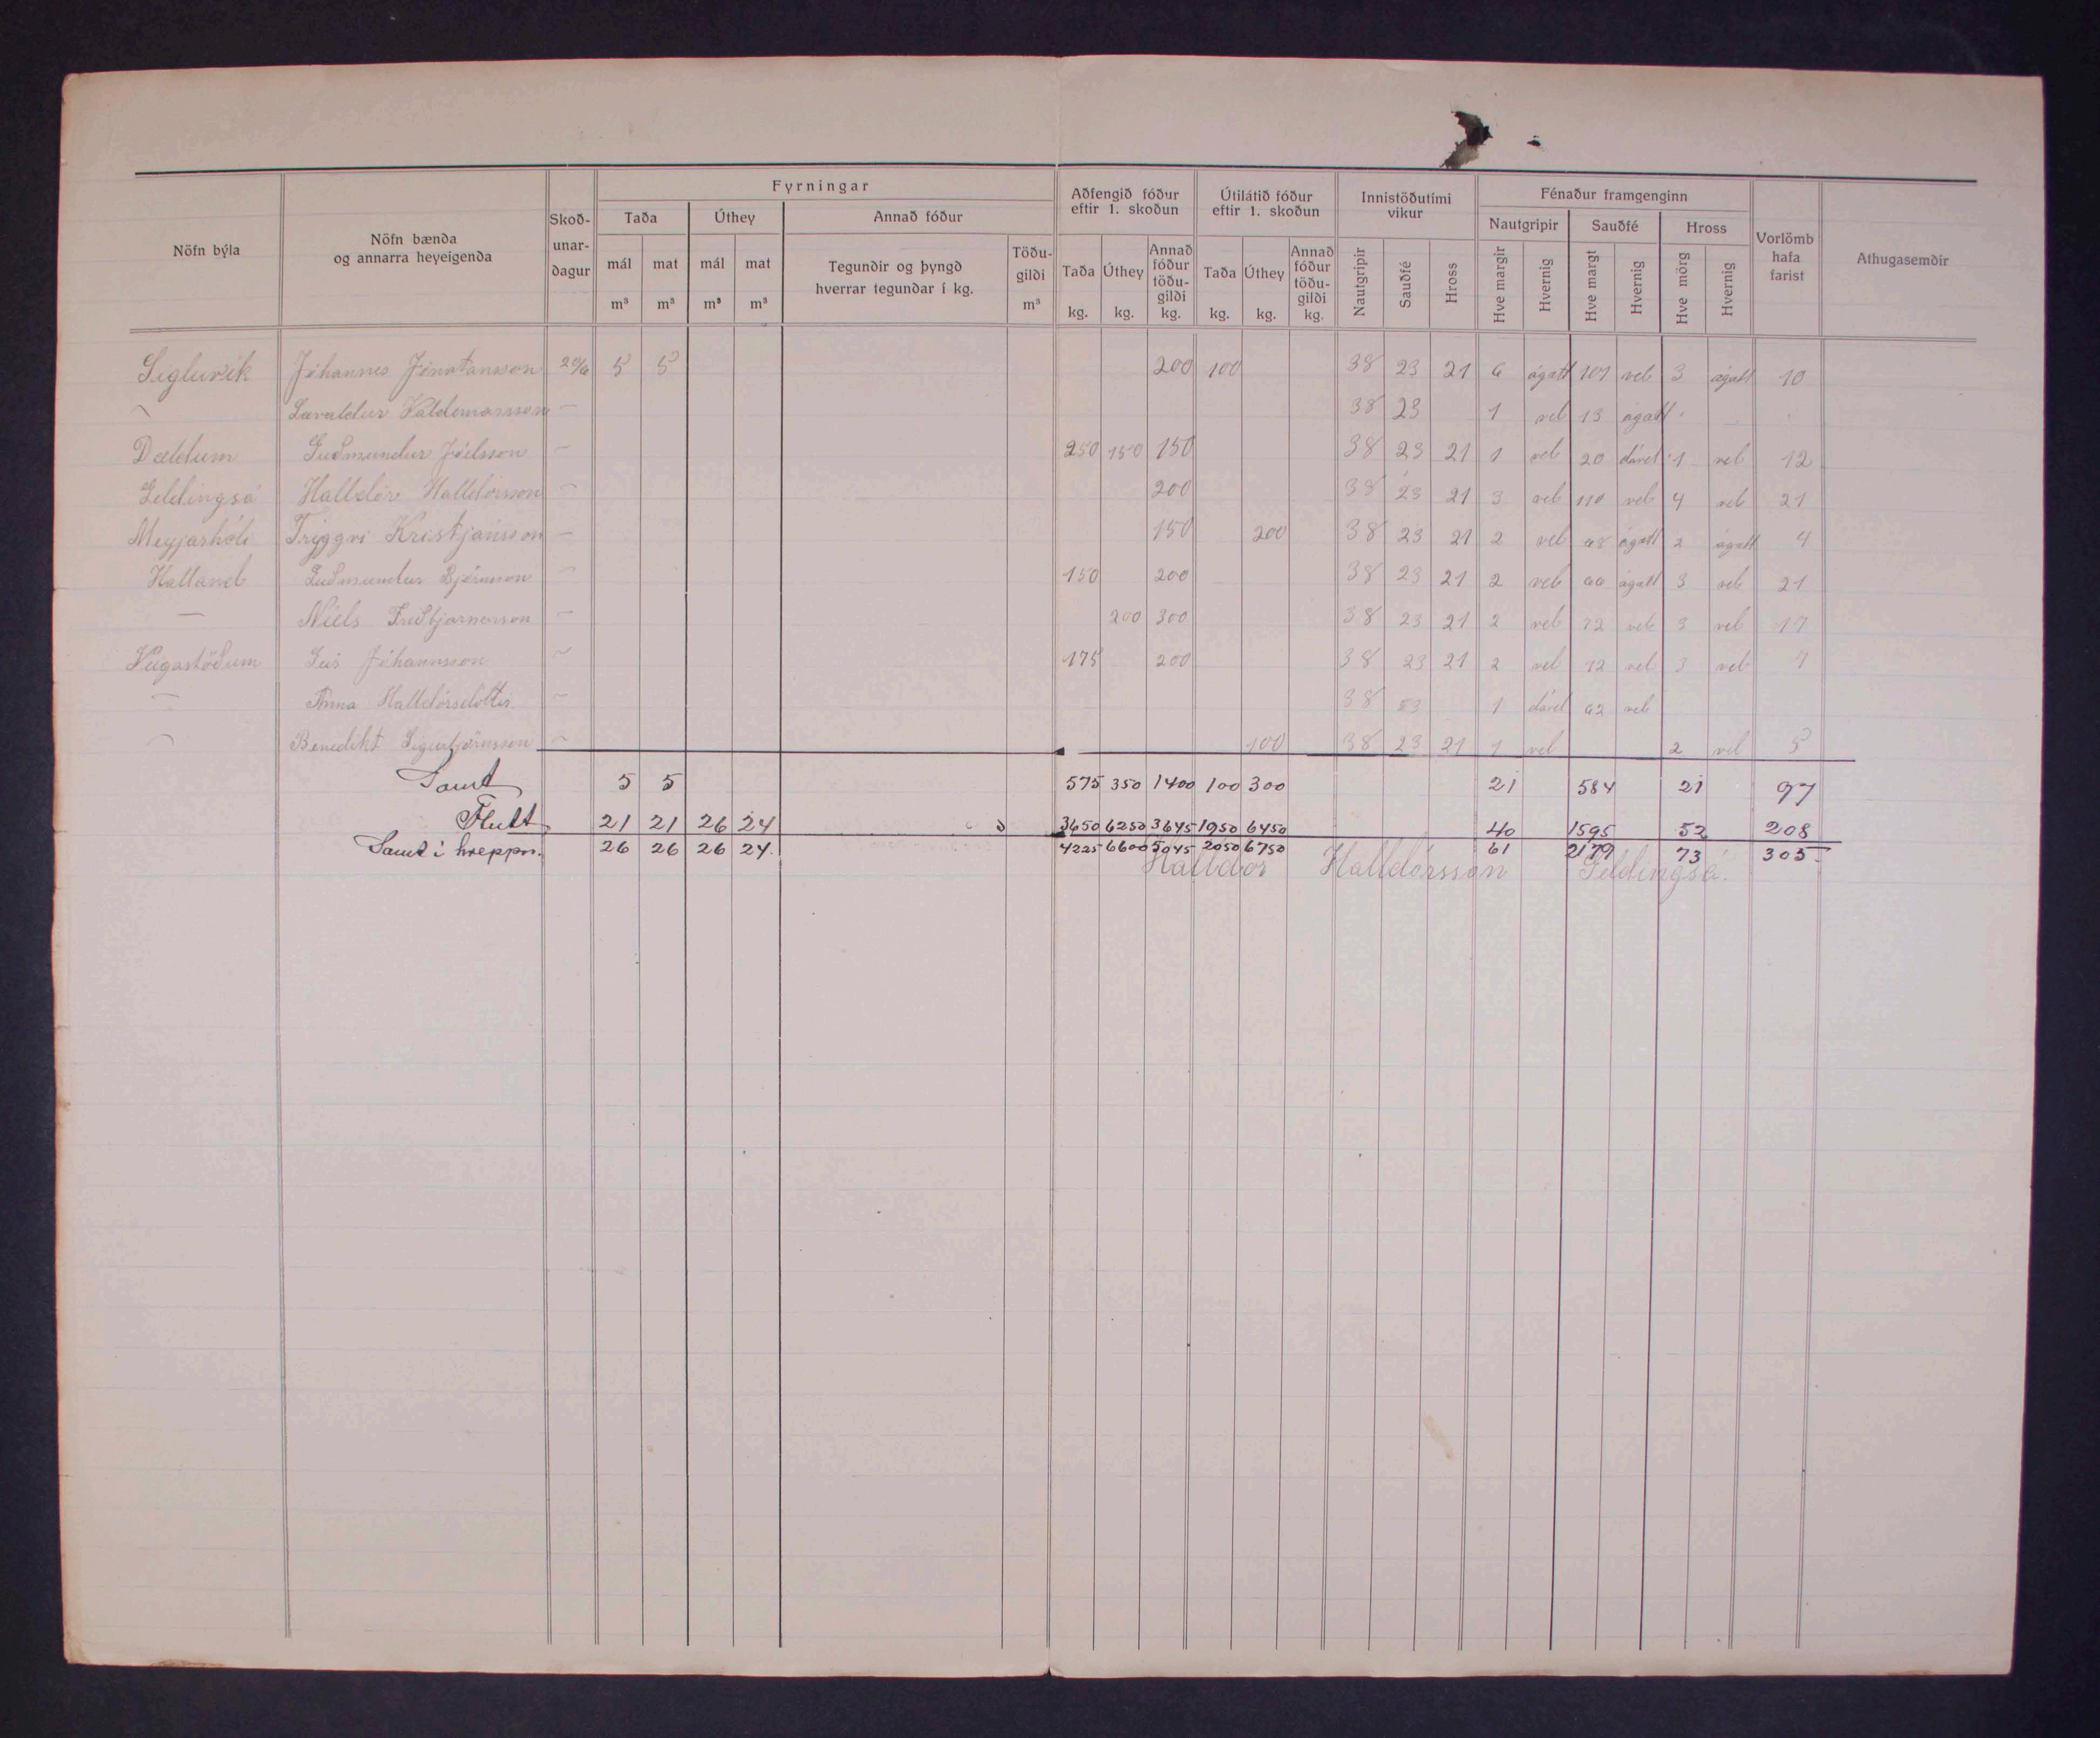 Fyrningar
Aðfengið fóður eftir 1. skoðun
Útilátið fóður eftir 1. skoðun
Innistöðutími vikur
Fénaður framgenginn
Nöfn býla
Nöfn bænda og annarra heyeigenda
Skoð-unar-dagur
Taða
Úthey
Annað fóður
Nautgripir
Sauðfé
Hross
Vorlömb hafa farist
Athugasemdir
mál m³ mat m³ mál m³ mat m³
Tegundir og þyngd hverrar tegundar í kg.
Töðu-gildi m³
Taða kg. Úthey kg. Annað fóður töðu-gildi kg.
Taða kg. Úthey kg. Annað fóður töðu-gildi kg.
Nautgripir Sauðfé Hross
Hve margir Hvernig Hve margt Hvernig Hve mörg Hvernig
Sigluvík Jóhannes Jónatansson 5 5 200 100 38 23 21 6 ágætt 107 vel 3 ágætt 10
Valdemarsson – 38 23 1 vel 13 ágætt
Dældum Guðmundur Jóelsson – 250 150 150 38 23 21 1 vel 20 dável 1 vel 12
Geldingsá Halldór Halldórsson – 200 38 23 21 3 vel 110 vel 4 vel 21
Meyjarhóli Tryggvi Kristjánsson – 150 200 38 23 21 2 vel ágætt 2 ágætt 4
Halland Guðmundur Björnsson – 150 200 38 23 21 2 vel ágætt 3 vel 21
– Níels Friðbjarnarson – 200 300 38 23 21 2 vel 72 vel 3 vel 17
Veigastöðum Jóhannsson – 175 200 38 23 21 2 vel 72 vel 3 vel 7
– Anna Halldórsdóttir – 38 23 1 dável 62 vel
– Benedikt Sigurbjörnsson – 100 38 23 21 1 vel 2 vel 5
Samt 5 5 575 350 1400 100 300 21 584 21 97
Flutt 21 21 26 24 3650 6250 3645 1950 6450 40 1595 52 208
Samt í hreppn. 26 26 26 24. 4225 6600 5045 2050 6750 61 2179 73 305
Halldór Halldórsson Geldingsá.